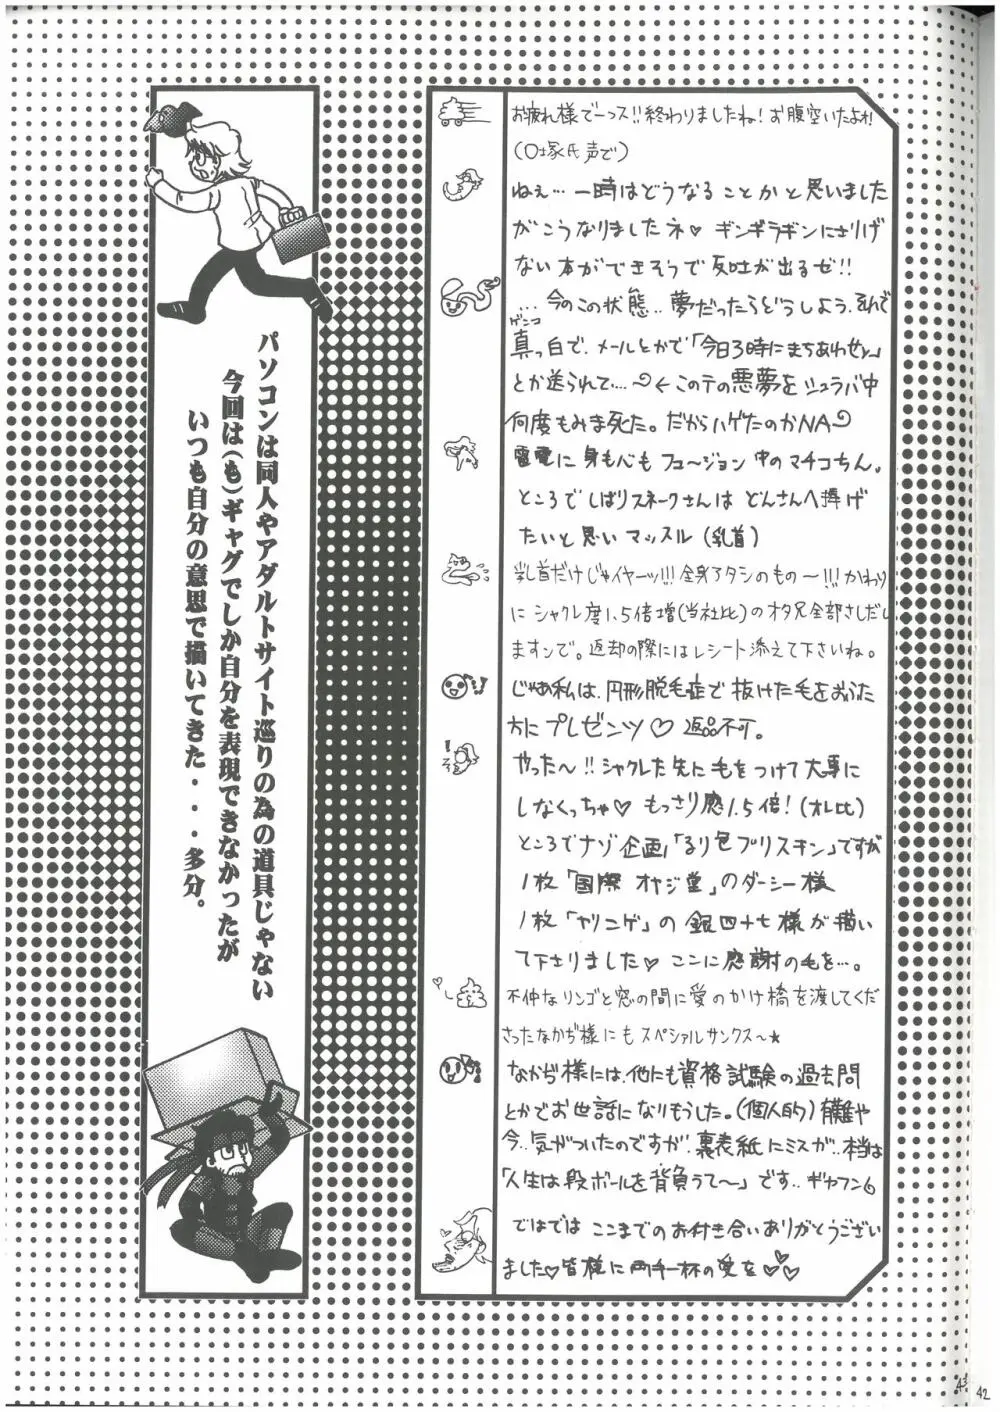 お疲れ様でーっス!!終わりましたね!お腹空いたよォ!
(○塚氏声で)
ねぇ…一時はどうなることかと思いました
がこうなりましたネ♡ ギンギラギンにさりげ
ない本ができそうで反吐が出るゼ!!
…今のこの状態..夢だったらどうしよう.それで
ゲンコ
真っ白で.メールとかで「今日3時にまちあわせ」
とか送られて….←このテの悪夢をシュラバ中
何度もみま死た。だからハゲたのかNA
雷電に身も心もフュ〜ジョン中のマチコちん。
ところでしばりスネークさんは どんさんへ捧げ
たいと思いマッスル(乳首)
乳首だけじゃイヤーッ!!!全身アタシのもの〜!!!かわり
にシャクレ度1.5倍増(当社比)のオタ兄全部さしだし
ますンで。返却の際にはレシート添えて下さいね。
じゃあ私は.円形脱毛症で抜けた毛をおうた
方にプレゼンツ♡返品不可。
やった〜!!シャクレた先に毛をつけて大事に
しなくっちゃ♡ もっさり感1.5倍!(オレ比)
ところでナゾ企画「るり色プリスキン」ですが
1枚「国際オヤジ堂」のダーシー様
1枚「ヤリニゲ」の銀四十七様が描い
て下さりました♡ここに感謝の毛を…。
不仲なリンゴと窓の間に愛のかけ橋を渡してくだ
さったなかぢ様にもスペシャルサンクス〜★
なかぢ様には.他にも資格試験の過去問
とかでお世話になりもうした。(個人的)有難や
今..気がついたのですが.裏表紙にミスが..本当は
「人生は段ボールを背負うて〜」です..ギャフン
ではでは ここまでのお付き合いありがとうござい
ました♡皆様に両手一杯の愛を♡♡♡
パソコンは同人やアダルトサイト巡りの為の道具じゃない
今回は(も)ギャグでしか自分を表現できなかったが
いつも自分の意思で描いてきた・・・多分。
43
42